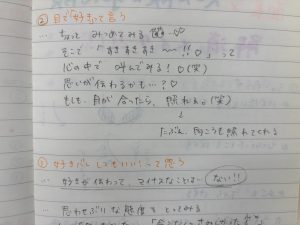 ② 目で「好き」って言う
… ちょっと みつめてみる …♡
そこで 「すきすきすき〜!!♡」って
心の中で 叫んでみる！♡(笑)
思いが伝わるかも…？♡
もしも、目が合ったら、照れる。(笑)
↓
たぶん、向こうも照れてくれる
③ 好きバレしてもいい！って思う
… 好きが伝わって、マイナスなことは… ない!!
… 思わせぶりな態度をとってみる